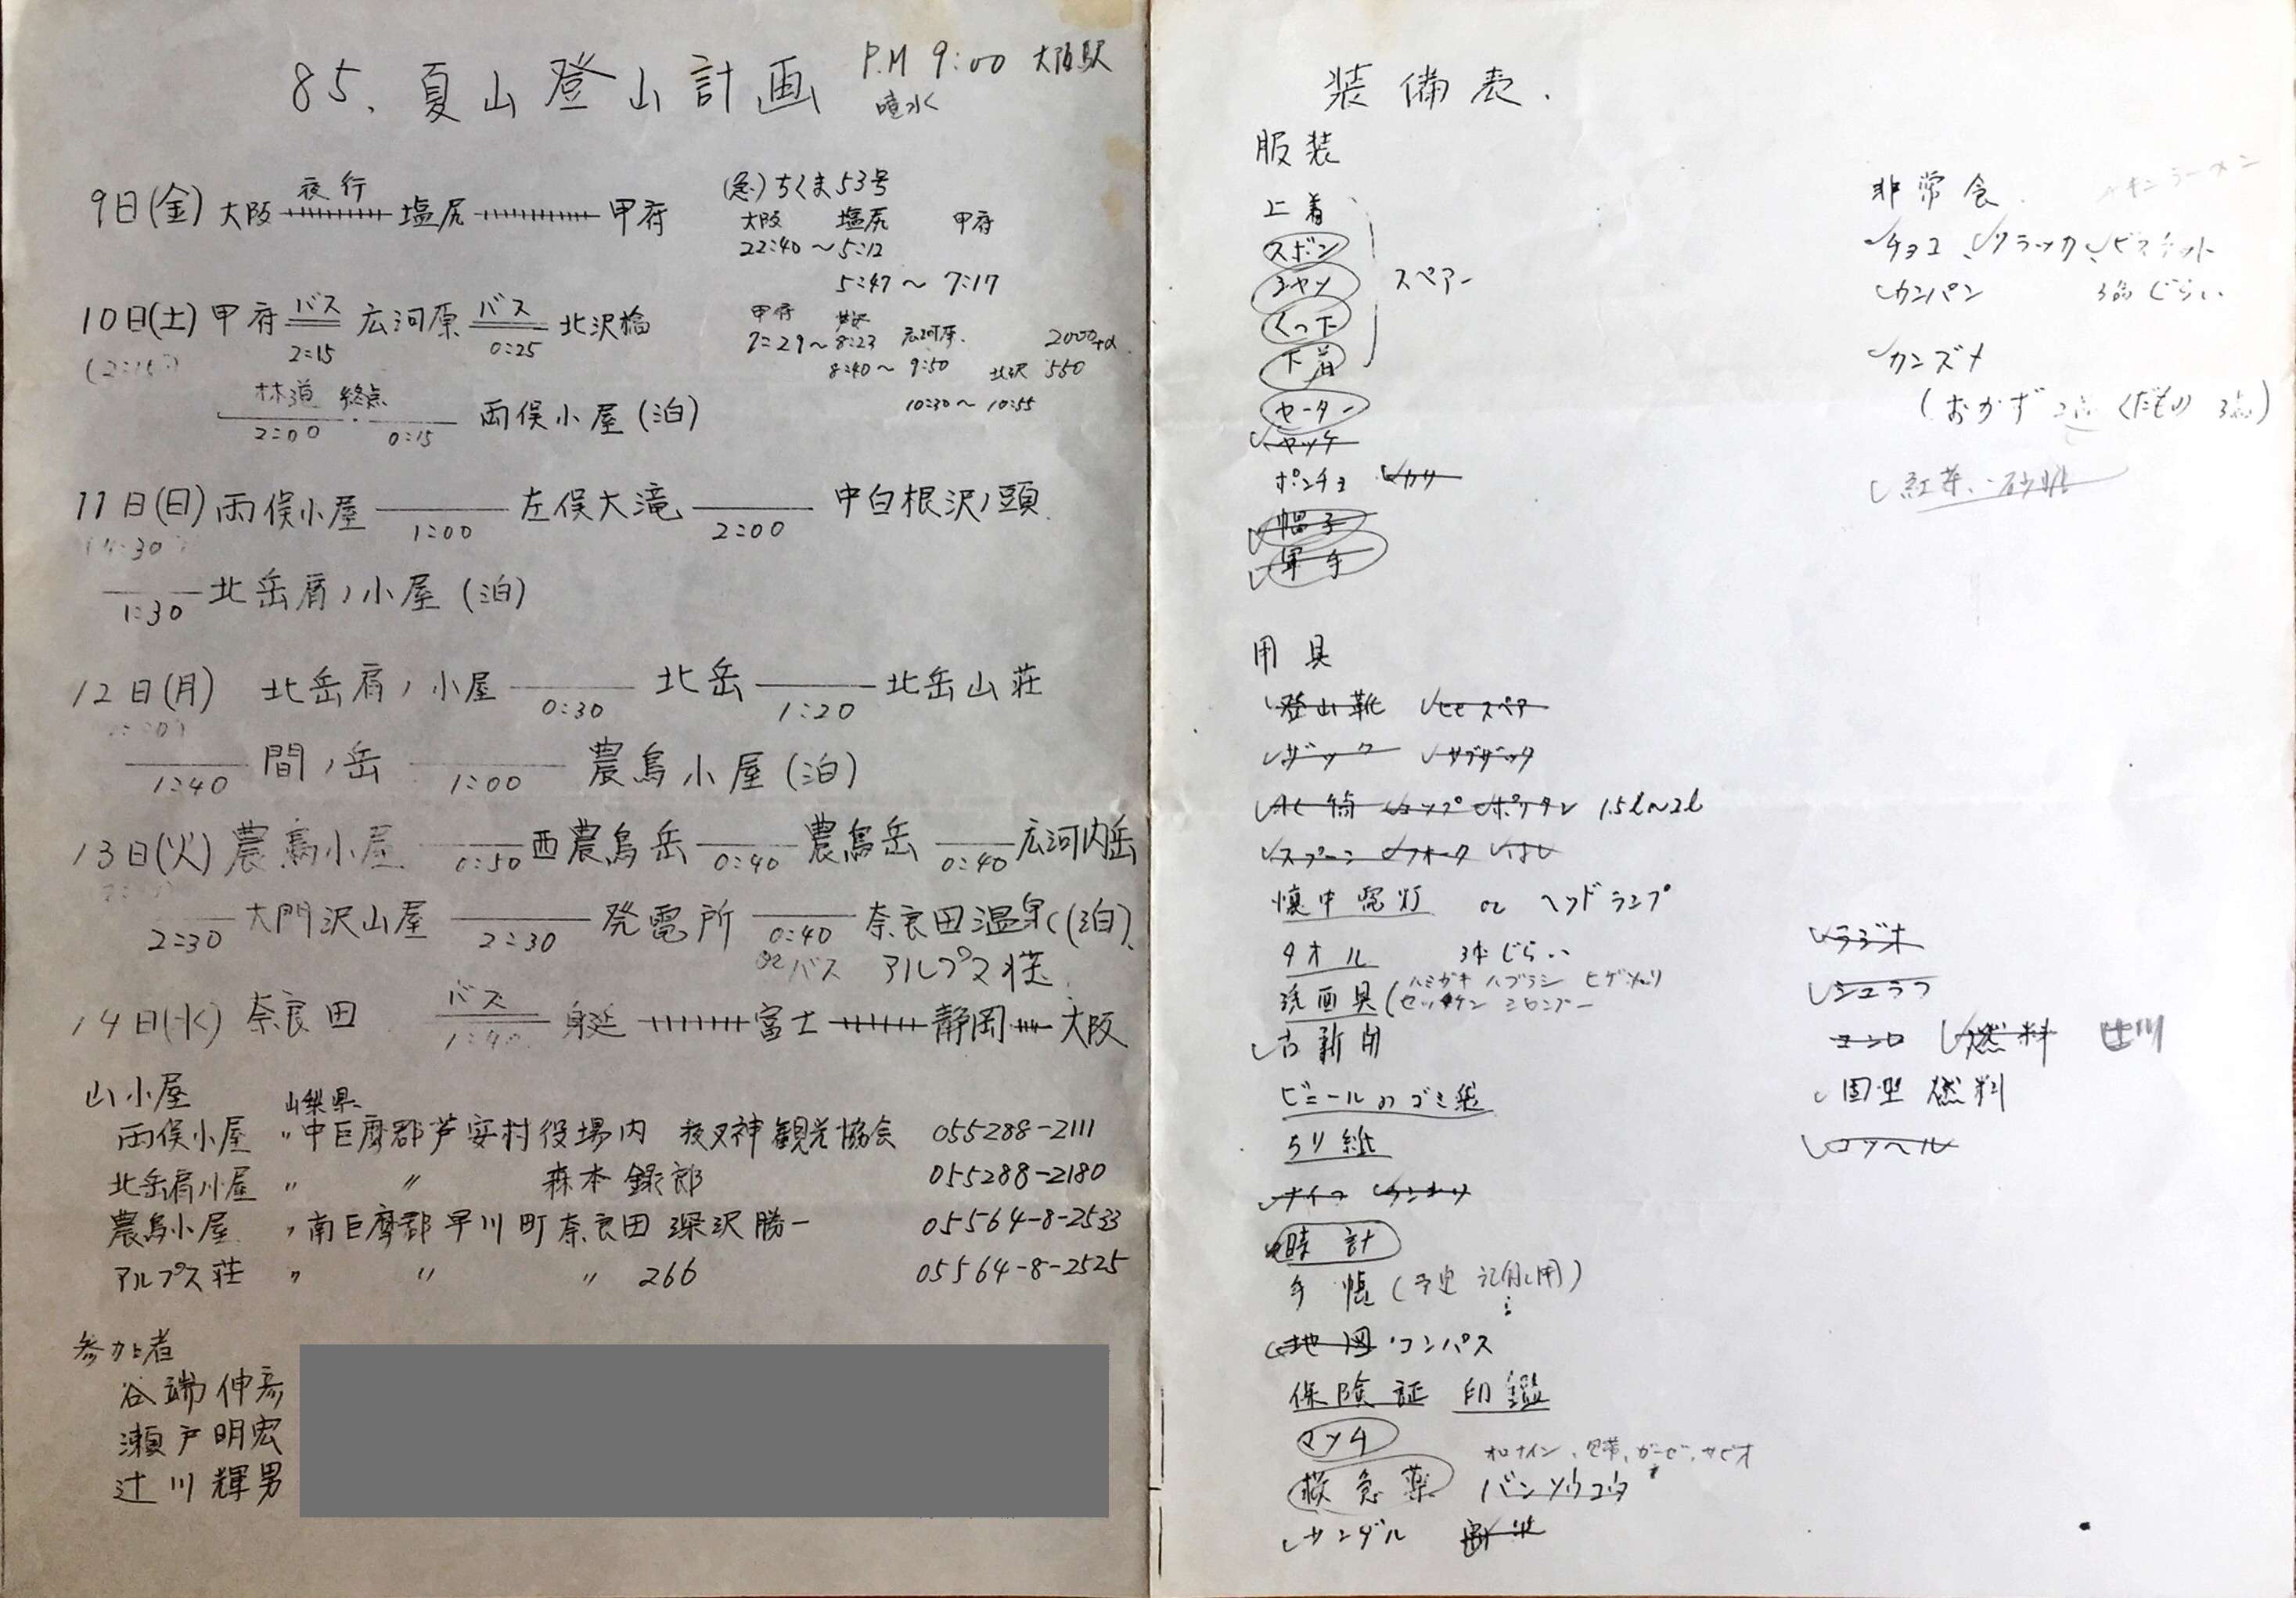 85. 夏山登山計画
P.M 9:00 大阪駅
噴水
9日(金) 大阪 夜行 塩尻 甲府
(急)ちくま53号
大阪 塩尻 甲府
22:40〜5:12
5:47〜7:17
10日(土) 甲府 バス 2:15 広河原 バス 0:25 北沢橋
甲府 芦安 広河原
7:29〜8:23 2000+α
8:40〜9:50 北沢 550
10:30〜10:55
林道 終点
2:00 0:15 両俣小屋(泊)
11日(日) 両俣小屋 1:00 左俣大滝 2:00 中白根沢ノ頭
1:30 北岳肩ノ小屋(泊)
12日(月) 北岳肩ノ小屋 0:30 北岳 1:20 北岳山荘
1:40 間ノ岳 1:00 農鳥小屋(泊)
13日(火) 農鳥小屋 0:50 西農鳥岳 0:40 農鳥岳 0:40 広河内岳
2:30 大門沢山屋 2:30 発電所 0:40 奈良田温泉(泊)
or バス アルプス荘
14日(水) 奈良田 バス 1:40 身延 富士 静岡 大阪
山小屋
山梨県
両俣小屋 〃 中巨摩郡芦安村役場内 夜叉神観光協会 055288-2111
北岳肩小屋 〃 〃 森本録郎 055288-2180
農鳥小屋 〃 南巨摩郡早川町奈良田 深沢勝一 05564-8-2533
アルプス荘 〃 〃 〃 266 05564-8-2525
参加者
谷端伸彦
瀬戸明宏
辻川輝男
装備表.
服装
上着
ズボン
シャツ
スペアー
くつ下
下着
セーター
ヤッケ
ポンチョ カサ
帽子
軍手
用具
登山靴 ヒモスペア
ザック サブザック
水筒 コップ ポリタン 1.5l〜2l
スプーン フォーク はし
懐中電灯 or ヘッドランプ
タオル 3本じらい
洗面具(ハミガキ ハブラシ ヒゲソリ
セッケン シャンプー
古新聞
ビニールのゴミ袋
ちり紙
ナイフ カンキリ
時計
手帳(予定 記録用)
地図・コンパス
保険証 印鑑
マッチ
オロナイン、包帯、ガーゼ、サビオ
救急薬 バンソウコウ
サンダル
非常食
チョコ、クラッカ、ビスケット
カンパン 3品じらい
カンズメ
(おかず 2品 くだもの 3品)
紅茶、砂糖
ラジオ
シュラフ
コンロ 燃料 辻川
固型燃料
コッヘル